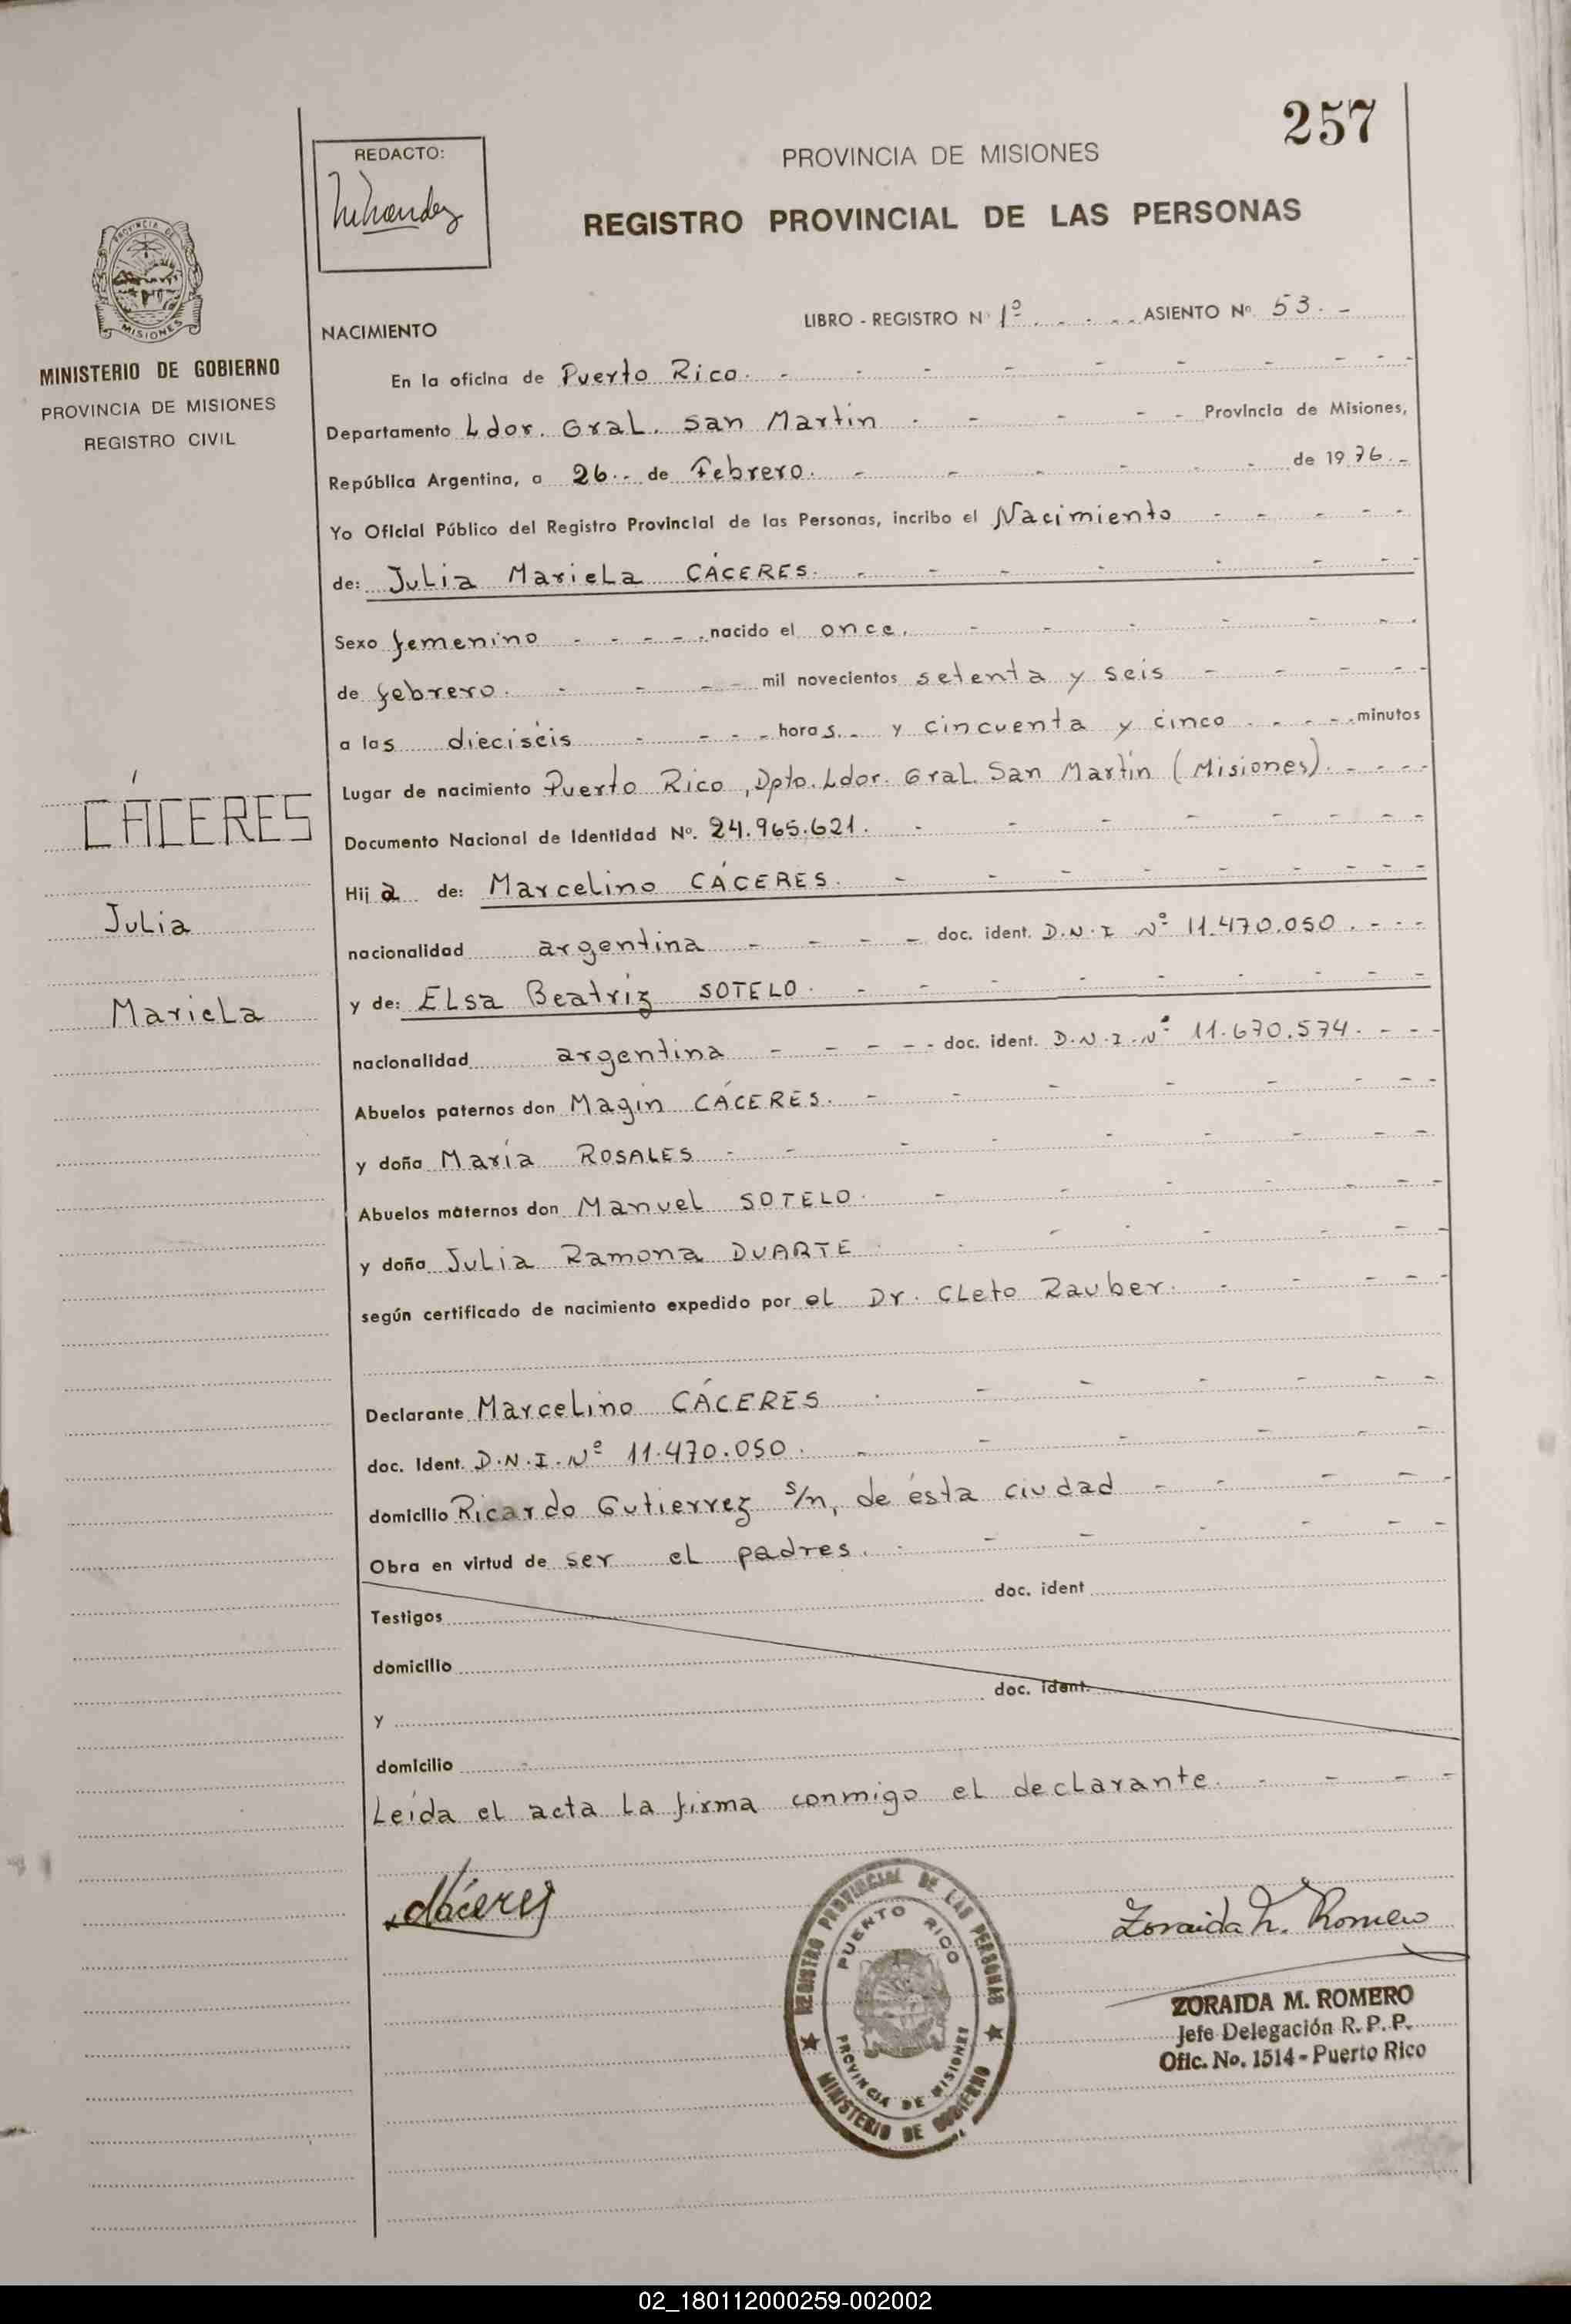 257
REDACTO:
PROVINCIA DE MISIONES
REGISTRO PROVINCIAL DE LAS PERSONAS
PROVINCIA DE
MISIONES
MINISTERIO DE GOBIERNO
PROVINCIA DE MISIONES
REGISTRO CIVIL
NACIMIENTO LIBRO - REGISTRO Nº 1º ASIENTO Nº 53. -
En la oficina de Puerto Rico. -
Departamento Ldor. Gral. San Martín - Provincia de Misiones,
República Argentina, a 26 .. de Febrero. - de 1976. -
Yo Oficial Público del Registro Provincial de las Personas, incribo el Nacimiento -
de: Julia Mariela CÁCERES. -
Sexo femenino - nacido el once. -
de febrero. - mil novecientos setenta y seis -
a las dieciséis - horas. y cincuenta y cinco - minutos
Lugar de nacimiento Puerto Rico, Dpto. Ldor. Gral. San Martín (Misiones). -
Documento Nacional de Identidad Nº. 24.965.621. -
Hija de: Marcelino CÁCERES. -
nacionalidad argentina - doc. ident. D.N.I Nº 11.470.050. -
y de: Elsa Beatriz SOTELO. -
nacionalidad argentina - doc. ident. D.N.I. Nº 11.670.574. -
Abuelos paternos don Magin CÁCERES. -
y doña María ROSALES -
Abuelos maternos don Manuel SOTELO. -
y doña Julia Ramona DUARTE -
según certificado de nacimiento expedido por el Dr. Cleto Rauber. -
Declarante Marcelino CÁCERES -
doc. Ident. D.N.I. Nº 11.470.050. -
domicilio Ricardo Gutierrez s/n, de ésta ciudad -
Obra en virtud de ser el padres. -
Testigos doc. ident
domicilio
y doc. ident.
domicilio
Leída el acta la firma conmigo el declarante. -
CÁCERES
Julia
Mariela
Cáceres
Zoraida M. Romero
REGISTRO PROVINCIAL DE LAS PERSONAS
PUERTO RICO
PROVINCIA DE MISIONES
MINISTERIO DE GOBIERNO
ZORAIDA M. ROMERO
Jefe Delegación R. P. P.
Ofic. No. 1514 - Puerto Rico
02_180112000259-002002